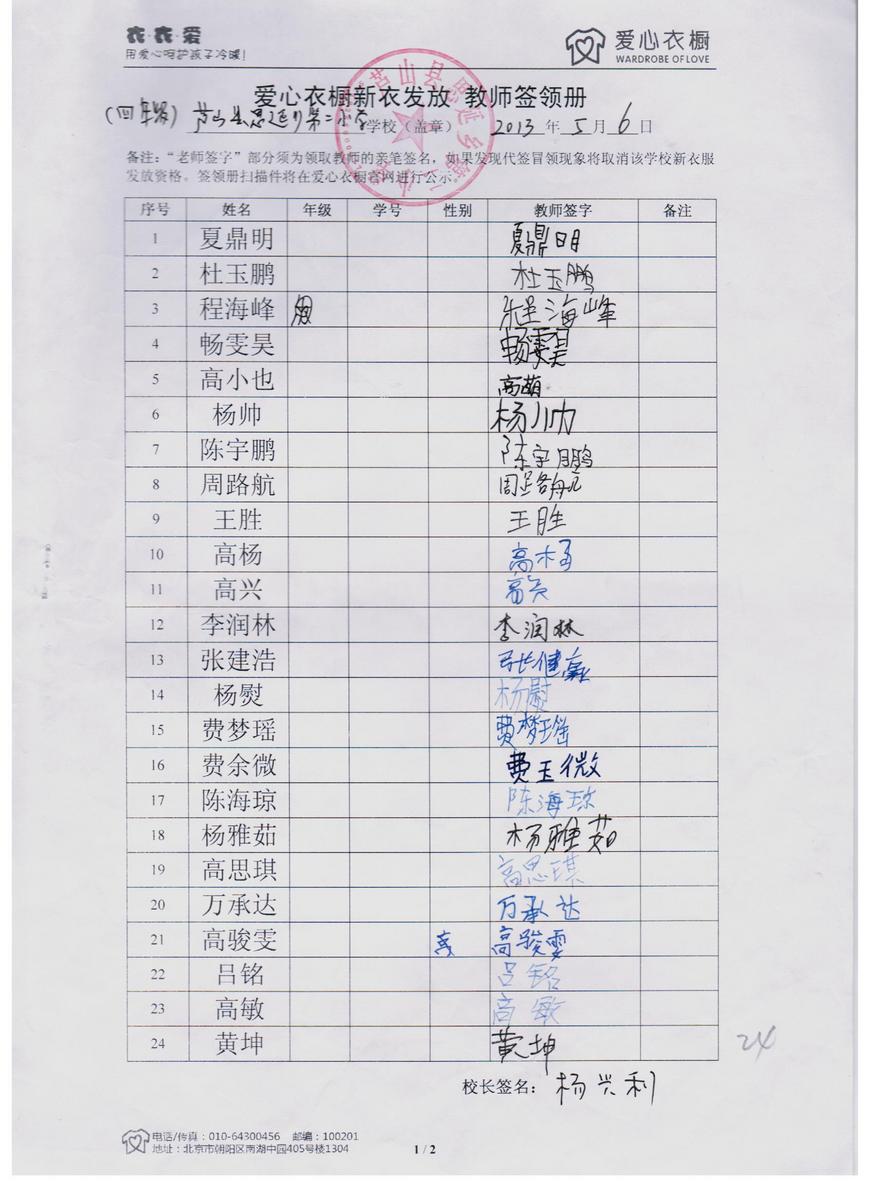 衣·衣·爱
用爱心呵护孩子冷暖!
爱心衣橱
WARDROBE OF LOVE
爱心衣橱新衣发放 教师签领册
(四年级) 芦山县思延乡第二小学 学校(盖章) 2013 年 5 月 6 日
备注:“老师签字”部分须为领取教师的亲笔签名,如果发现代签冒领现象将取消该学校新衣服
发放资格。签领册扫描件将在爱心衣橱官网进行公示。
序号 姓名 年级 学号 性别 教师签字 备注
1 夏鼎明 夏鼎明
2 杜玉鹏 杜玉鹏
3 程海峰 程海峰
4 畅雯昊 畅雯昊
5 高小也 高萌
6 杨帅 杨帅
7 陈宇鹏 陈宇鹏
8 周路航 周路航
9 王胜 王胜
10 高杨 高杨
11 高兴 高兴
12 李润林 李润林
13 张建浩 张健豪
14 杨熨 杨熨
15 费梦瑶 费梦瑶
16 费余微 费玉微
17 陈海琼 陈海琼
18 杨雅茹 杨雅茹
19 高思琪 高思琪
20 万承达 万承达
21 高骏雯 高骏雯
22 吕铭 吕铭
23 高敏 高敏
24 黄坤 黄坤
24
校长签名: 杨兴利
电话/传真:010-64300456 邮编:100201
地址:北京市朝阳区南湖中园405号楼1304
1 / 2